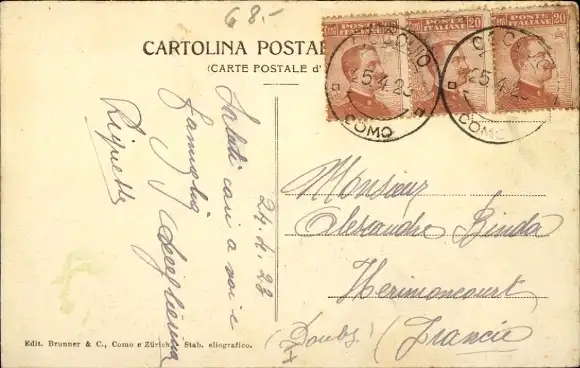 68.-
CARTOLINA POSTALE
(CARTE POSTALE d'
POSTE ITALIANE 20
20
COMO
25.4.23
COMO
25.4.23
24.4.23
Saluti cari a voi e
famiglia
Righetta
Monsieur
Alexandre Binda
Herimoncourt
(Doubs)
Francia
Edit. Brunner & C., Como e Zürich. Stab. eliografico.